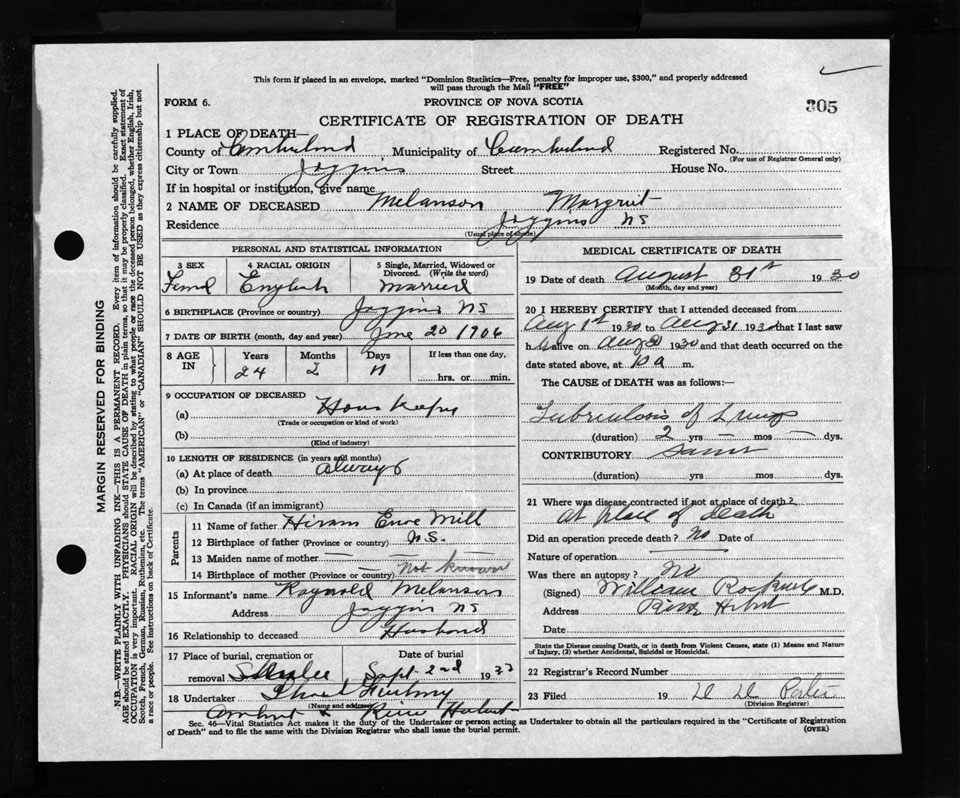 This form if placed in an envelope, marked "Dominion Statistics—Free, penalty for improper use, $300," and properly addressed
will pass through the Mail "FREE"
FORM 6.
PROVINCE OF NOVA SCOTIA
305
CERTIFICATE OF REGISTRATION OF DEATH
1 PLACE OF DEATH—
County of Cumberland Municipality of Cumberland Registered No.
(For use of Registrar General only)
City or Town Joggins Street House No.
If in hospital or institution, give name
2 NAME OF DECEASED Melanson Margriet
Residence Joggins NS
(Usual place of abode)
PERSONAL AND STATISTICAL INFORMATION
3 SEX 4 RACIAL ORIGIN 5 Single, Married, Widowed or
Divorced. (Write the word)
English Married
6 BIRTHPLACE (Province or country) Joggins NS
7 DATE OF BIRTH (month, day and year) June 20 1906
8 AGE IN Years Months Days If less than one day,
24 2 11 hrs. or min.
9 OCCUPATION OF DECEASED
(a)
(Trade or occupation or kind of work)
(b)
(Kind of industry)
10 LENGTH OF RESIDENCE (in years and months)
(a) At place of death always
(b) In province
(c) In Canada (if an immigrant)
Parents
11 Name of father Hiram Mill
12 Birthplace of father (Province or country) N.S.
13 Maiden name of mother —
14 Birthplace of mother (Province or country) — Not known
15 Informant's name Raynold Melanson
Address Joggins NS
16 Relationship to deceased Husband
17 Place of burial, cremation or Date of burial
removal Sept 2nd 19
18 Undertaker
(Name and address)
Amherst & River Hebert
MEDICAL CERTIFICATE OF DEATH
19 Date of death August 31st 1930
(Month, day and year)
20 I HEREBY CERTIFY that I attended deceased from
Aug 1st 1930 to Aug 31 1930 that I last saw
h alive on Aug 1930 and that death occurred on the
date stated above, at 10 a m.
The CAUSE of DEATH was as follows:—
Tuberculosis of Lungs
(duration) 2 yrs — mos — dys.
CONTRIBUTORY Same
(duration) yrs. mos. dys.
21 Where was disease contracted if not at place of death?
At place of death
Did an operation precede death? No Date of
Nature of operation
Was there an autopsy? No
(Signed) William M.D.
Address River Hebert
Date
State the Disease causing Death, or in death from Violent Causes, state (1) Means and Nature
of Injury, (2) whether Accidental, Suicidal or Homicidal.
22 Registrar's Record Number
23 Filed 19 Porter
(Division Registrar)
Sec. 46—Vital Statistics Act makes it the duty of the Undertaker or person acting as Undertaker to obtain all the particulars required in the "Certificate of Registration
of Death" and to file the same with the Division Registrar who shall issue the burial permit.
(OVER)
MARGIN RESERVED FOR BINDING
N.B.—WRITE PLAINLY WITH UNFADING INK—THIS IS A PERMANENT RECORD. Every item of information should be carefully supplied.
AGE should be stated EXACTLY. PHYSICIANS should STATE CAUSE OF DEATH in plain terms, so that it may be properly classified. Exact statement of
OCCUPATION is very important. RACIAL ORIGIN will be described by stating to what people or race the deceased person belonged, whether English, Irish,
Scotch, French, German, Russian, Ruthenian, etc. The terms "AMERICAN" or "CANADIAN" SHOULD NOT BE USED as they express citizenship but not
a race or people. See instructions on back of Certificate.